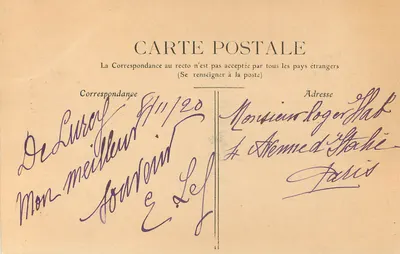 CARTE POSTALE
La Correspondance au recto n'est pas acceptée par tous les pays étrangers
(Se renseigner à la poste)
Correspondance
Adresse
De Lurcy 8/11/20
Mon meilleur
souvenir
Monsieur Roger
4 Avenue d'Italie
Paris